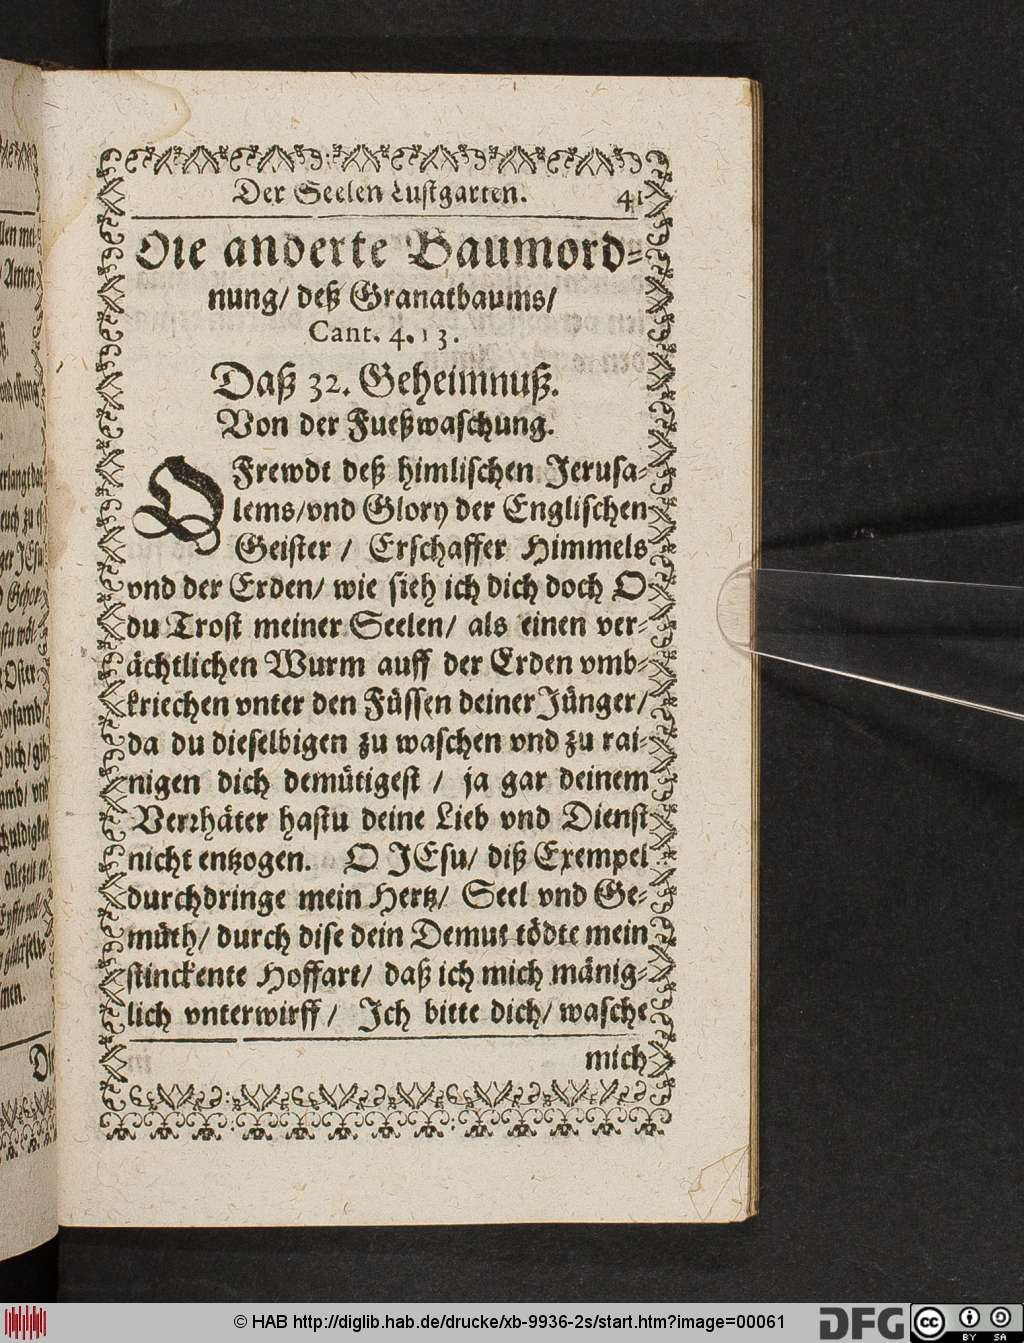 Der Seelen Lustgarten. 41
Die anderte Baumord-
nung/ deß Granatbaums/
Cant. 4. 13.
Daß 32. Geheimnuß.
Von der Fueßwaschung.
O Frewdt deß himlischen Jerusa-
lems/vnd Glory der Englischen
Geister / Erschaffer Himmels
vnd der Erden/ wie sieh ich dich doch O
du Trost meiner Seelen/ als einen ver-
ächtlichen Wurm auff der Erden vmb-
kriechen vnter den Füssen deiner Jünger/
da du dieselbigen zu waschen vnd zu rai-
nigen dich demütigest / ja gar deinem
Verrhäter hastu deine Lieb vnd Dienst
nicht entzogen. O JEsu/ diß Exempel
durchdringe mein Hertz/ Seel vnd Ge-
müth/ durch dise dein Demut tödte mein
stinckente Hoffart/ daß ich mich mänig-
lich vnterwirff / Ich bitte dich/ wasche
mich
llen mei-
Amen.
erlangt das
ger JEsu
Oster-
horsamb/
dich/ gib
amb/ vnd
chuldigkeit
allezeit er-
men.
Die
© HAB http://diglib.hab.de/drucke/xb-9936-2s/start.htm?image=00061
DFG
cc
BY SA